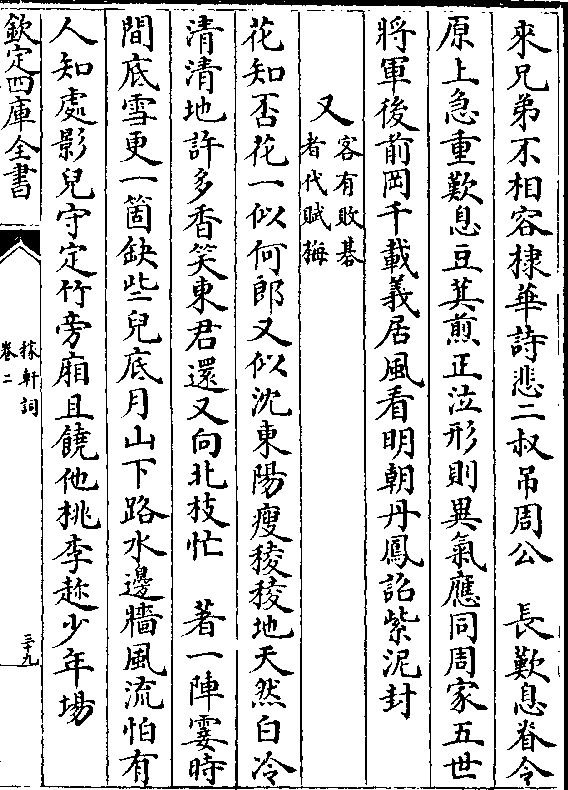 來兄弟不相容棣華詩悲二叔吊周公　長歎息脊令
原上急重歎息豆萁煎正泣形則異氣應同周家五世
將軍後前岡千載義居風看明朝丹鳳詔紫泥封
又
客有敗碁
者代賦梅
花知否花一似何郎又似沈東陽瘦稜稜地天然白冷
清清地許多香笑東君還又向北枝忙　著一陣霎時
間底雪更一箇缺些兒底月山下路水邊牆風流怕有
人知處影兒守定竹旁廂且饒他桃李趂少年場
欽定四庫全書
稼軒詞
卷二
三十九